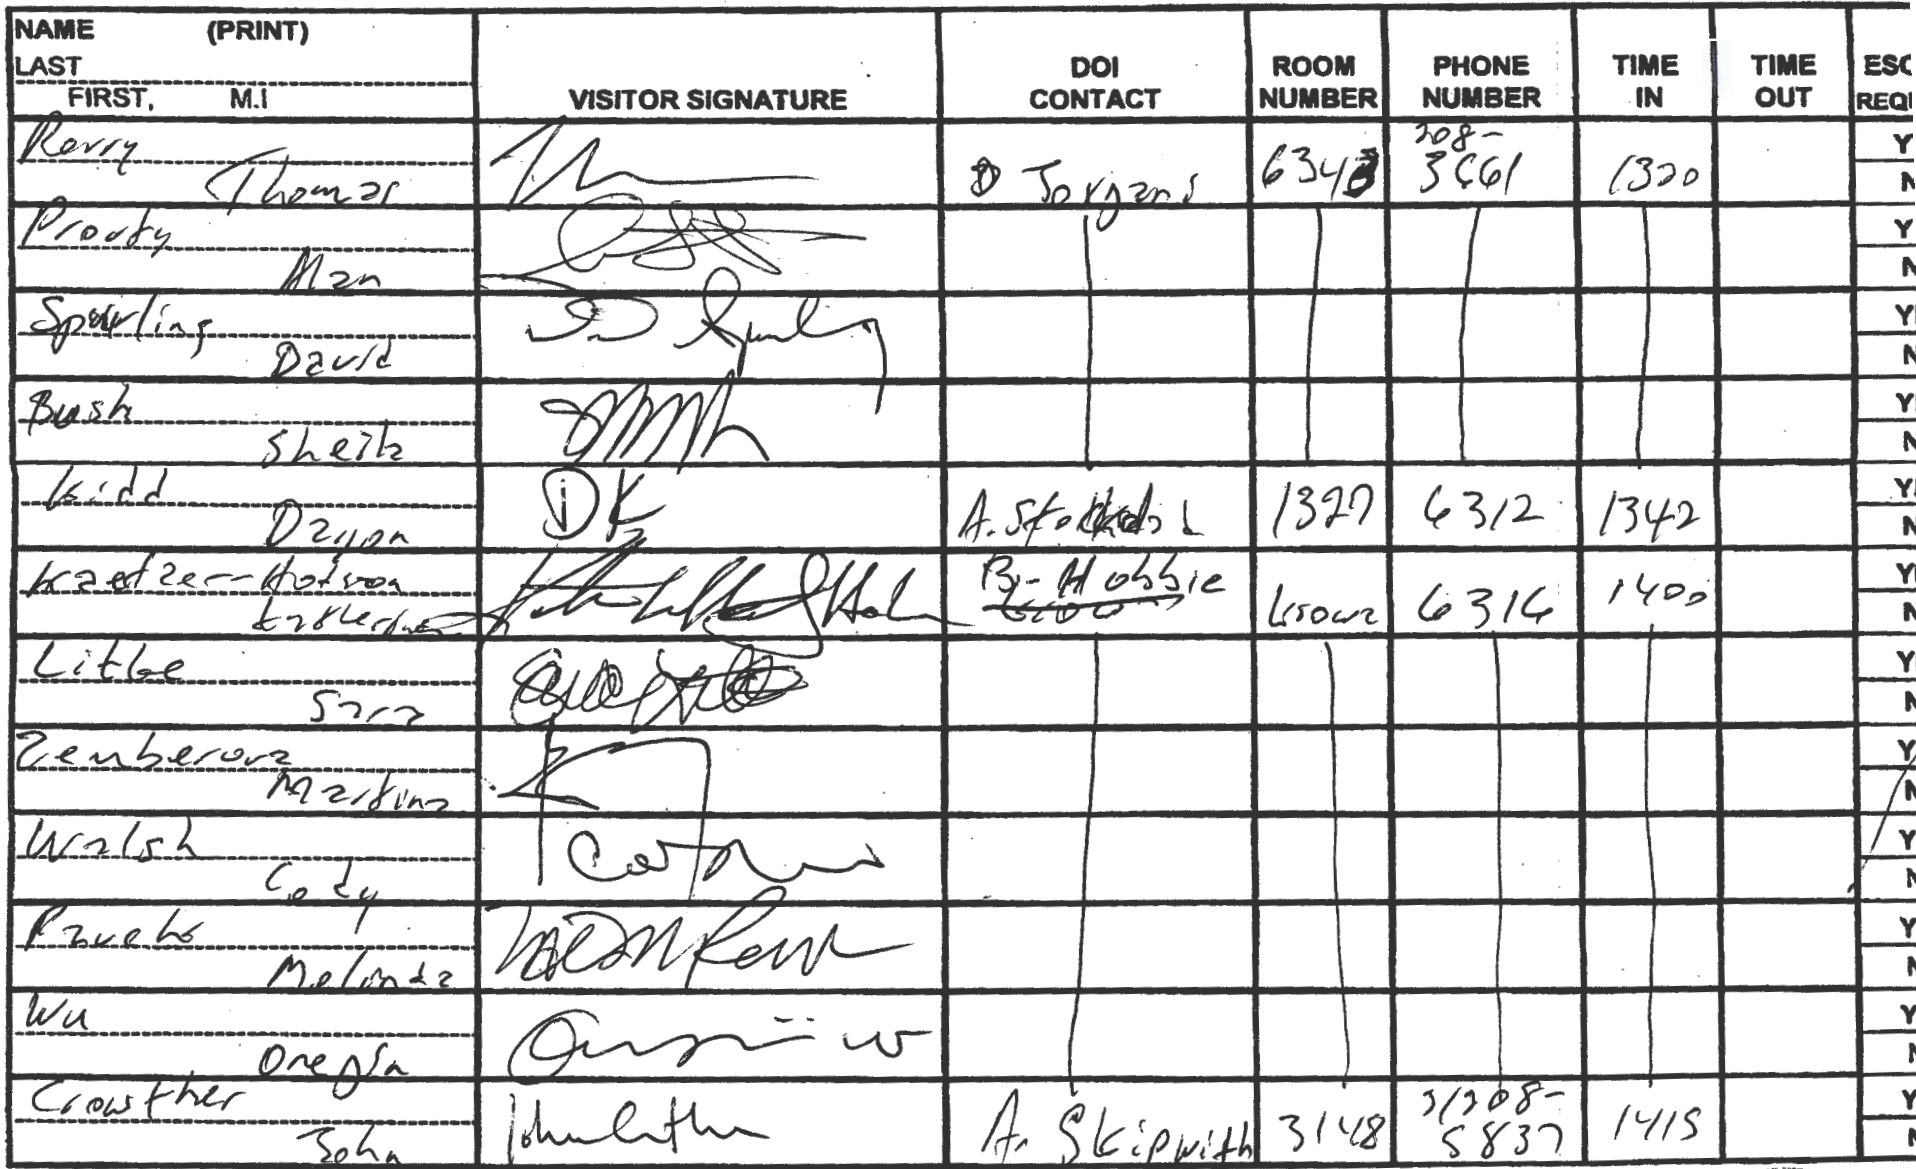 NAME (PRINT)
LAST
FIRST, M.I
VISITOR SIGNATURE
DOI
CONTACT
ROOM
NUMBER
PHONE
NUMBER
TIME
IN
TIME
OUT
ESC
REQI
Perry
Thomas
Jorgans
634
208-
3661
1320
Y
N
Prouty
Alan
Y
N
Sparling
David
Y
N
Bush
Sheila
Y
N
Kidd
Dayon
DK
A.
1327
6312
1342
Y
N
Kaetzer-Hodson
Katherine
B. Hobbie
Krowa
6316
1400
Y
N
Litke
Sara
Y
N
Zemberova
Martina
Y
N
Walsh
Cody
Y
N
Melinda
Y
N
Wu
Y
N
Crowther
John
A. Skipwith
3148
208-
5837
1415
Y
N